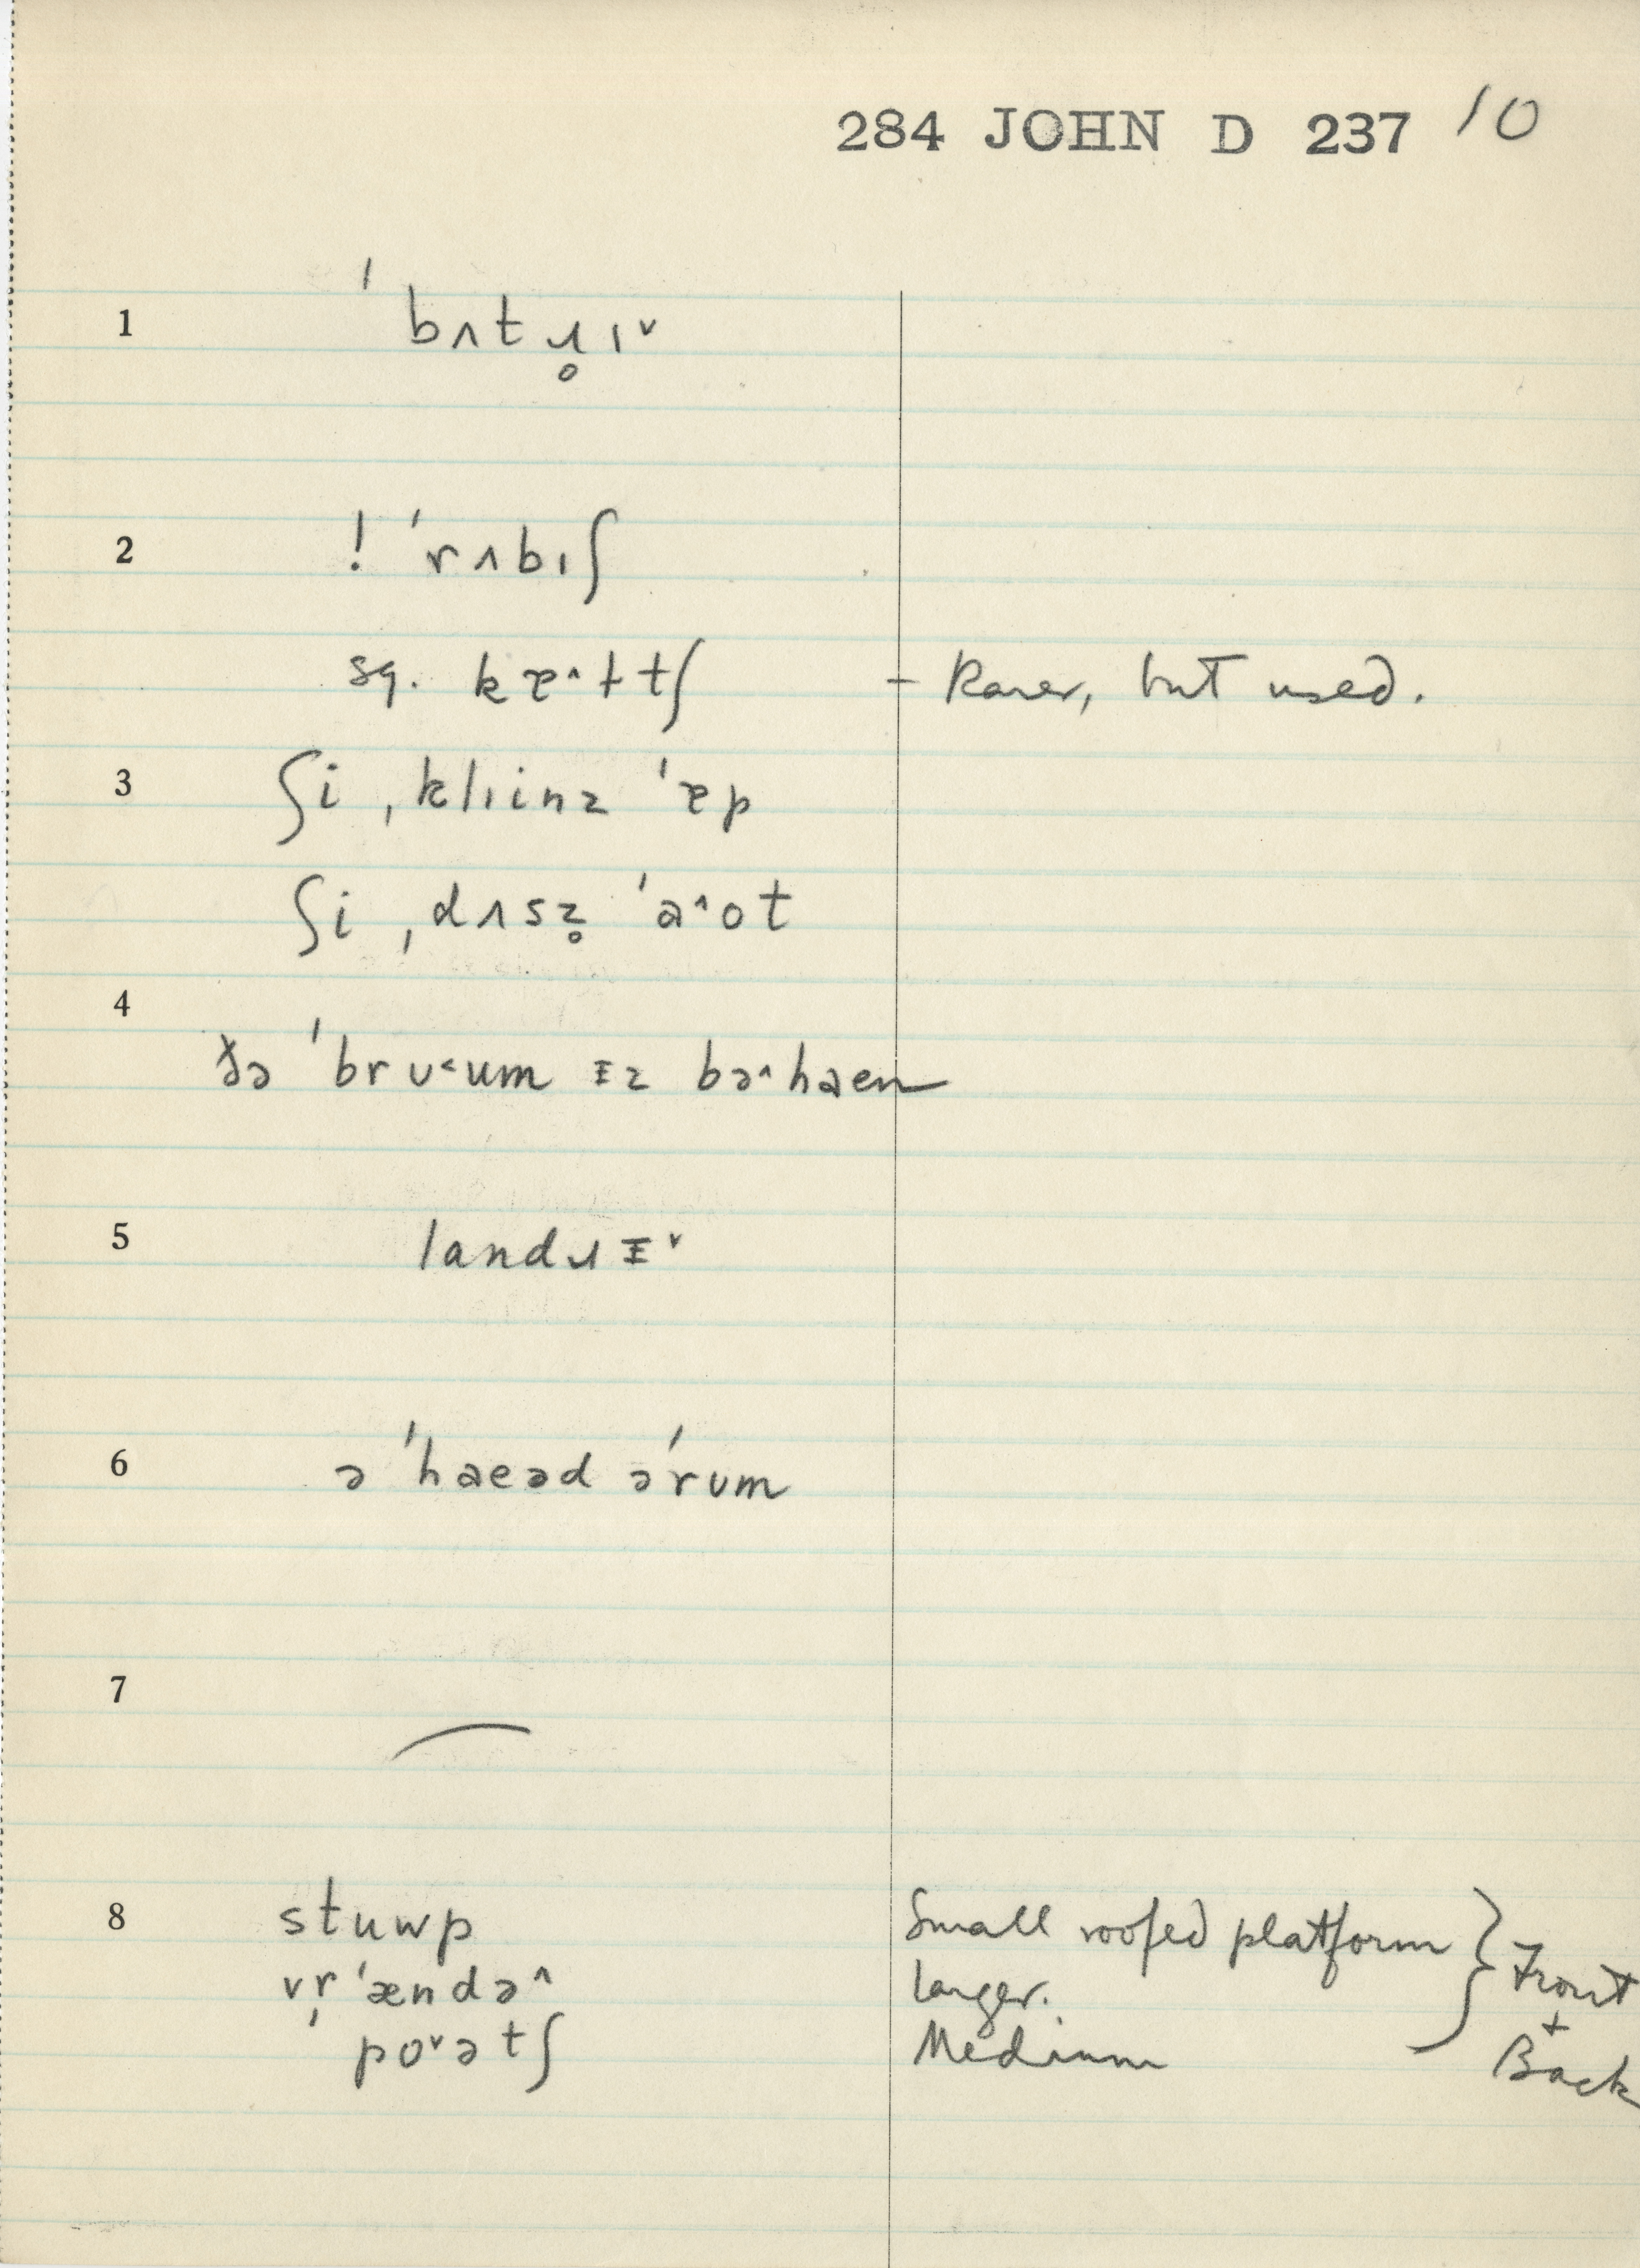 284 JOHN D 237 10
1 ˈbʌtɹ̥ɪ˅
2 ! ˈrʌbɪʃ
sq. kɐ˄ɫtʃ - Rarer, but used.
3 ʃi ˌklɪinz ˈɐp
ʃi ˌdʌsz̥ ˈa˄ot
4 ðə ˈbrʊ˂um ᵻz bə˄haen
5 landɹᵻ˅
6 ə ˈhaeəd əˈrum
7
8 stuwp Small roofed platform } Front + Back
vr̩ˈændə˄ Larger.
ˈpo˅ətʃ Medium